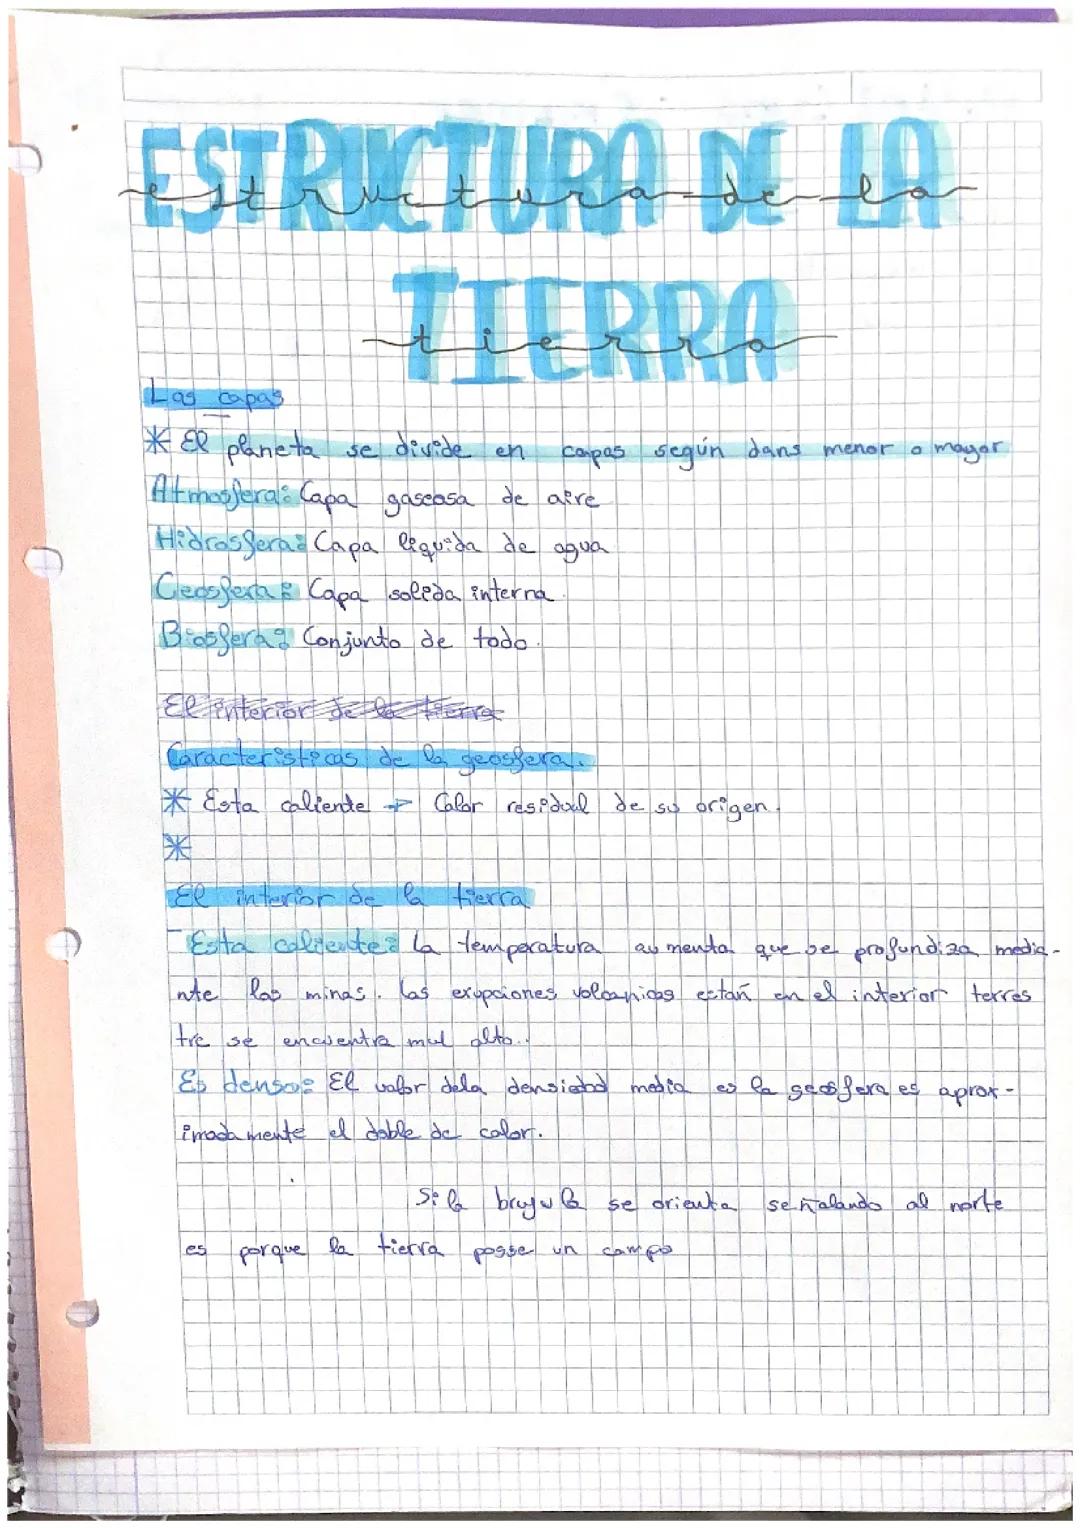 ESTRUCTURA DE LA
estructura de la
TIERRA
tierra
Las capas
* El planeta se divide en capas según dans menor o mayor
Atmosfera: Capa gaseosa de aire
Hidrosfera: Capa liquida de agua
Geosfera: Capa solida interna.
Biosfera: Conjunto de todo.
El interior de la tierra
Caracteristicas de la geosfera.
* Esta caliente → Calor residual de su origen.
*
El interior de la tierra
- Esta caliente: la temperatura aumenta que se profundiza media-
nte las minas. las erupciones volcanicas estan en el interior terres
tre se encuentra mul alto..
Es denso: El valor dela densidad media es la geosfera es aprox-
imadamente el doble de calor.
Si la brujula se orienta señalando al norte
es porque la tierra posse un campo